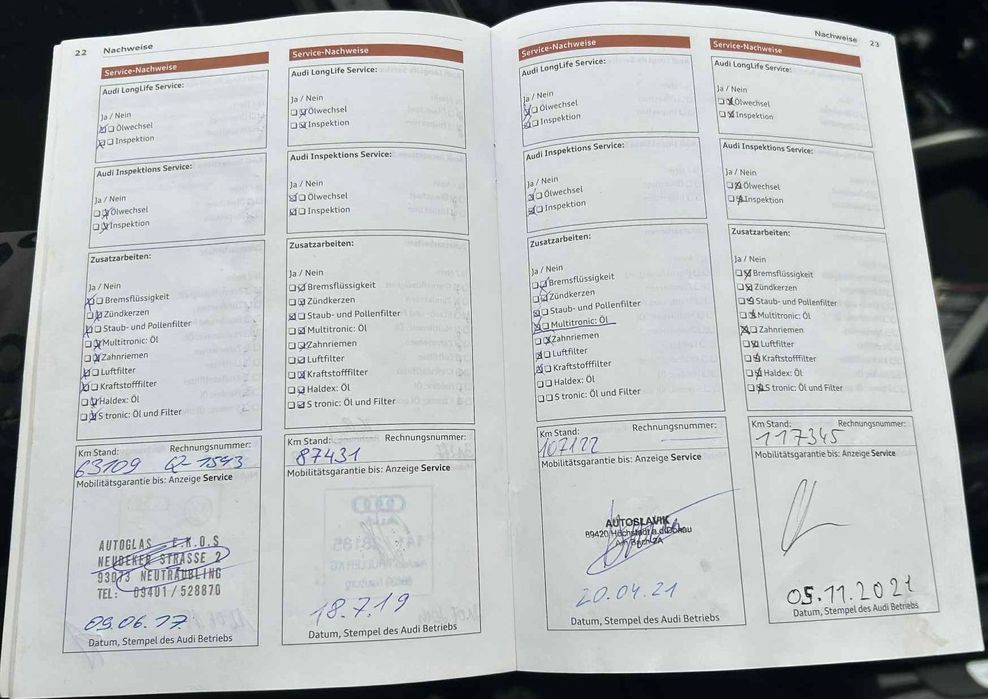 22 Nachweise
Service-Nachweise
Audi LongLife Service:
Ja / Nein
Ölwechsel
Inspektion
Audi Inspektions Service:
Ja / Nein
Ölwechsel
Inspektion
Zusatzarbeiten:
Ja / Nein
Bremsflüssigkeit
Zündkerzen
Staub- und Pollenfilter
Multitronic: Öl
Zahnriemen
Luftfilter
Kraftstofffilter
Haldex: Öl
S tronic: Öl und Filter
Km Stand: Rechnungsnummer:
63109 Q-1543
Mobilitätsgarantie bis: Anzeige Service
AUTOGLAS E.K.O.S
NEUDEKER STRASSE 2
93073 NEUTRAUBLING
TEL: 09401/528870
09.06.17
Datum, Stempel des Audi Betriebs
Service-Nachweise
Audi LongLife Service:
Ja / Nein
Ölwechsel
Inspektion
Audi Inspektions Service:
Ja / Nein
Ölwechsel
Inspektion
Zusatzarbeiten:
Ja / Nein
Bremsflüssigkeit
Zündkerzen
Staub- und Pollenfilter
Multitronic: Öl
Zahnriemen
Luftfilter
Kraftstofffilter
Haldex: Öl
S tronic: Öl und Filter
Km Stand: Rechnungsnummer:
87431
Mobilitätsgarantie bis: Anzeige Service
18.7.19
Datum, Stempel des Audi Betriebs
Nachweise 23
Service-Nachweise
Audi LongLife Service:
Ja / Nein
Ölwechsel
Inspektion
Audi Inspektions Service:
Ja / Nein
Ölwechsel
Inspektion
Zusatzarbeiten:
Ja / Nein
Bremsflüssigkeit
Zündkerzen
Staub- und Pollenfilter
Multitronic: Öl
Zahnriemen
Luftfilter
Kraftstofffilter
Haldex: Öl
S tronic: Öl und Filter
Km Stand: Rechnungsnummer:
107122
Mobilitätsgarantie bis: Anzeige Service
AUTOSLAVIK
89420 Höchstädt a.d. Donau
20.04.21
Datum, Stempel des Audi Betriebs
Service-Nachweise
Audi LongLife Service:
Ja / Nein
Ölwechsel
Inspektion
Audi Inspektions Service:
Ja / Nein
Ölwechsel
Inspektion
Zusatzarbeiten:
Ja / Nein
Bremsflüssigkeit
Zündkerzen
Staub- und Pollenfilter
Multitronic: Öl
Zahnriemen
Luftfilter
Kraftstofffilter
Haldex: Öl
S tronic: Öl und Filter
Km Stand: Rechnungsnummer:
117345
Mobilitätsgarantie bis: Anzeige Service
05.11.2021
Datum, Stempel des Audi Betriebs